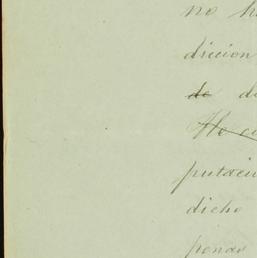 no h
dicion
de d
putacio
dicho
penas